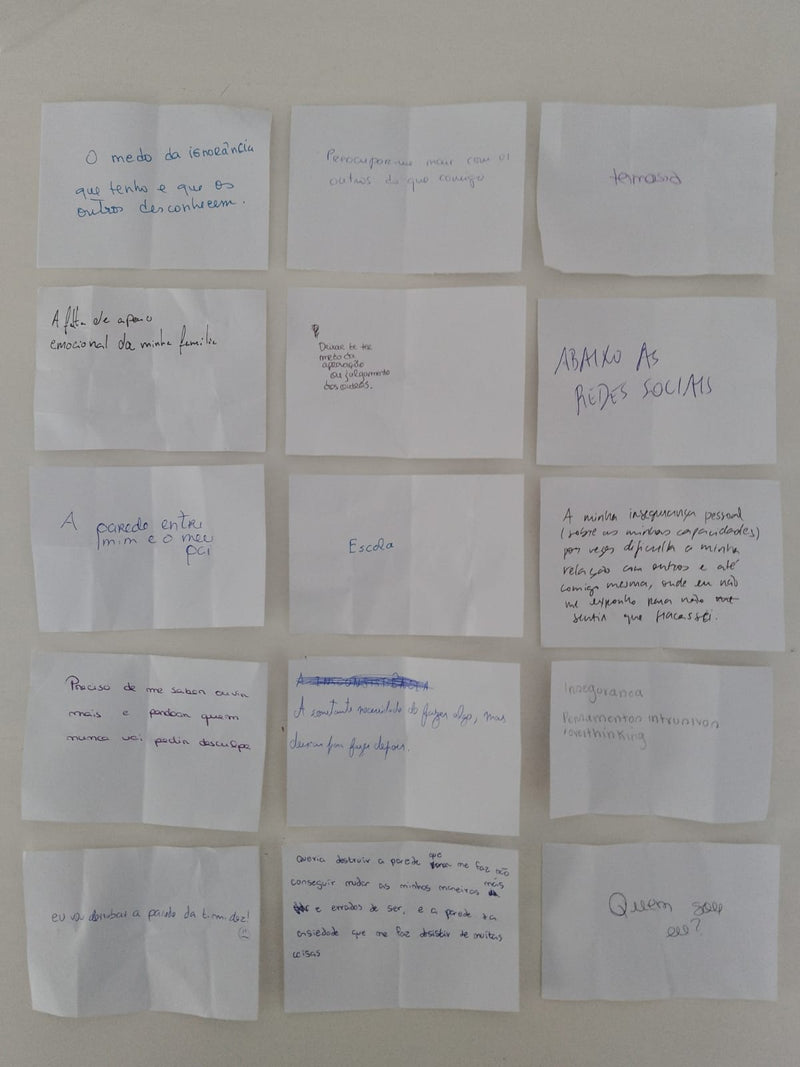 O medo da ignorância
que tenho e que os
outros desconhecem.
Preocupar-me mais com os
outros do que comigo
A falta de apoio
emocional da minha família
Deixar de ter
medo da
aprovação
ou julgamento
dos outros.
ABAIXO AS
REDES SOCIAIS
A parede entre
mim e o meu
pai
Escola
A minha insegurança pessoal
(sobre as minhas capacidades)
por vezes dificulta a minha
relação com outros e até
comigo mesma, onde eu não
me exponho para não me
sentir que fracassei.
Preciso de me saber ouvir
mais e perdoar quem
nunca vai pedir desculpa
A INCONSISTÊNCIA
A constante necessidade de fazer algo, mas
deixar para fazer depois.
Insegurança
Pensamentos intrusivos
overthinking
eu vou derrubar a parede da timidez!
Queria destruir a parede que me faz não
conseguir mudar as minhas maneiras más
e erradas de ser, e a parede da
ansiedade que me faz desistir de muitas
coisas
Quem sou
eu?